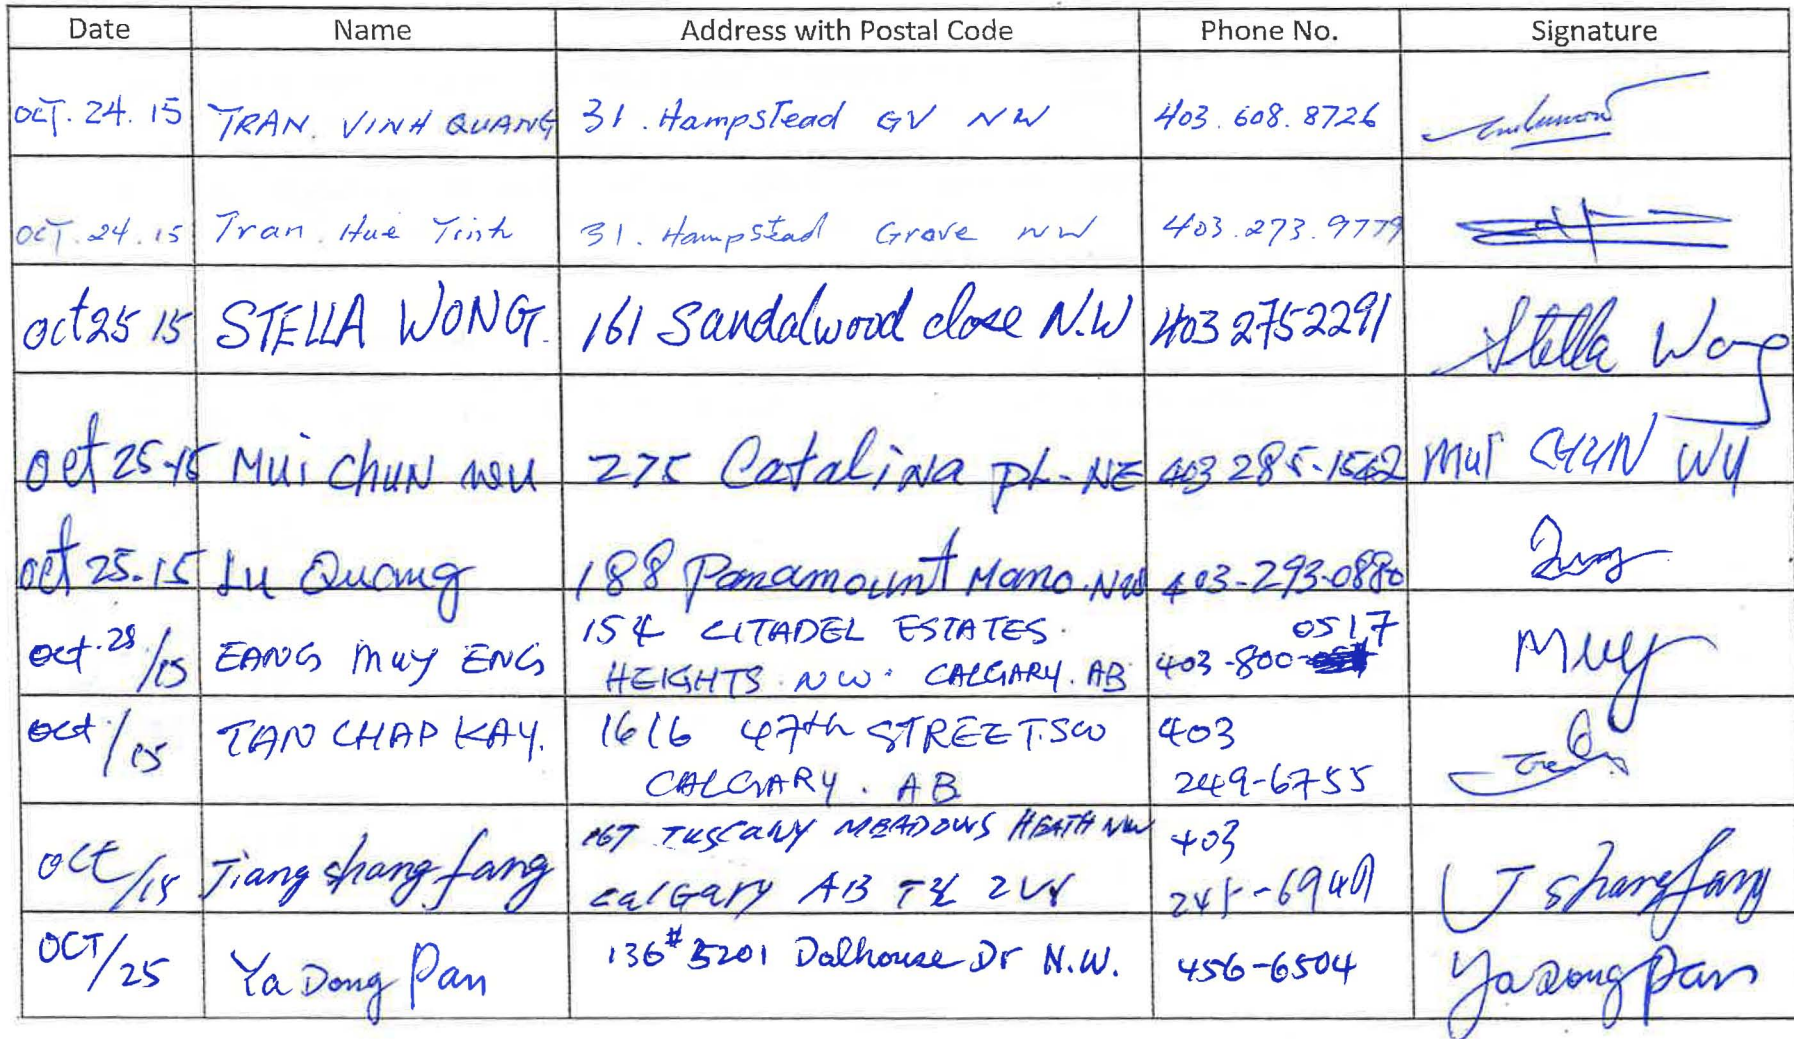 Date Name Address with Postal Code Phone No. Signature
OCT. 24. 15 TRAN. VINH QUANG 31. Hampstead GV NW 403.608.8726
OCT. 24. 15 Tran Hue Tinh 31. Hampstead Grove NW 403.273.9779
Oct 25 15 STELLA WONG. 161 Sandalwood close N.W 403 2752291 Stella Wong
Oct 25-15 Mui Chun wu 275 Catalina PL-NE 403 285-1562 Mui CHUN WU
oct 25.15 Lu Quang 188 Panamount NW 403-293-0880
oct.28/15 EANG MUY ENG 154 CITADEL ESTATES. 0517 Muy
HEIGHTS. NW. CALGARY. AB 403-800-
oct/15 TAN CHAP KAY. 1616 47th STREET.SW 403
CALGARY. AB 249-6755
oct/15 Jiang shang fang 167 TUSCANY MEADOWS HEATH NW 403
calGary AB 6940 J shang fang
OCT/25 Ya Dong Pan 136 # 5201 Dalhouse Dr N.W. 456-6504 Ya Dong Pan